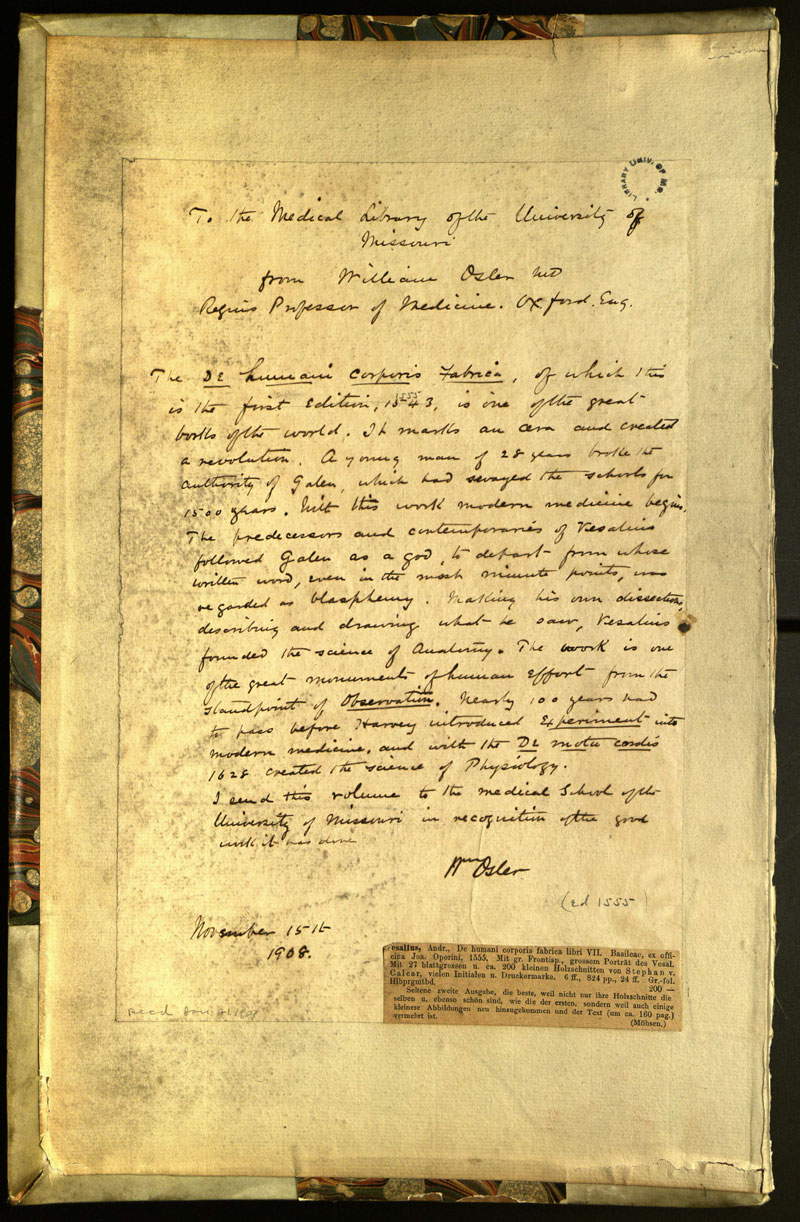 LIBRARY UNIV. OF MO.
To the Medical Library of the University of
Missouri
from William Osler MD
Regius Professor of Medicine. Oxford. Eng.
The De humani corporis Fabrica, of which this
is the first Edition, 1543, is one of the great
1555
books of the world. It marks an æra and created
a revolution. A young man of 28 years broke the
authority of Galen, which had swayed the schools for
1500 years. With this work modern medicine begins.
The predecessors and contemporaries of Vesalius
followed Galen as a god, to depart from whose
written word, even in the most minute points, was
regarded as blasphemy. Making his own dissections,
describing and drawing what he saw, Vesalius
founded the science of Anatomy. The work is one
of the great monuments of human effort from the
standpoint of Observation. Nearly 100 years had
to pass before Harvey introduced Experiment into
modern medicine, and with the De motu cordis
1628 created the science of Physiology.
I send this volume to the medical School of the
University of Missouri in recognition of the good
work it has done
Wm Osler
(Ed 1555)
November 15th
1908.
esalius, Andr., De humani corporis fabrica libri VII. Basileae, ex offi-
cina Joa. Oporini, 1555. Mit gr. Frontisp., grossem Porträt des Vesal.
Mit 27 blattgrossen u. ca. 200 kleinen Holzschnitten von Stephan v.
Calcar, vielen Initialen u. Druckermarke. 6 ff., 824 pp., 24 ff. Gr.-fol.
Hlbprgmtbd. 200 —
Seltene zweite Ausgabe, die beste, weil nicht nur ihre Holzschnitte die
selben u. ebenso schön sind, wie die der ersten, sondern weil auch einige
kleinere Abbildungen neu hinzugekommen und der Text (um ca. 160 pag.)
vermehrt ist. (Möhsen.)
Recd